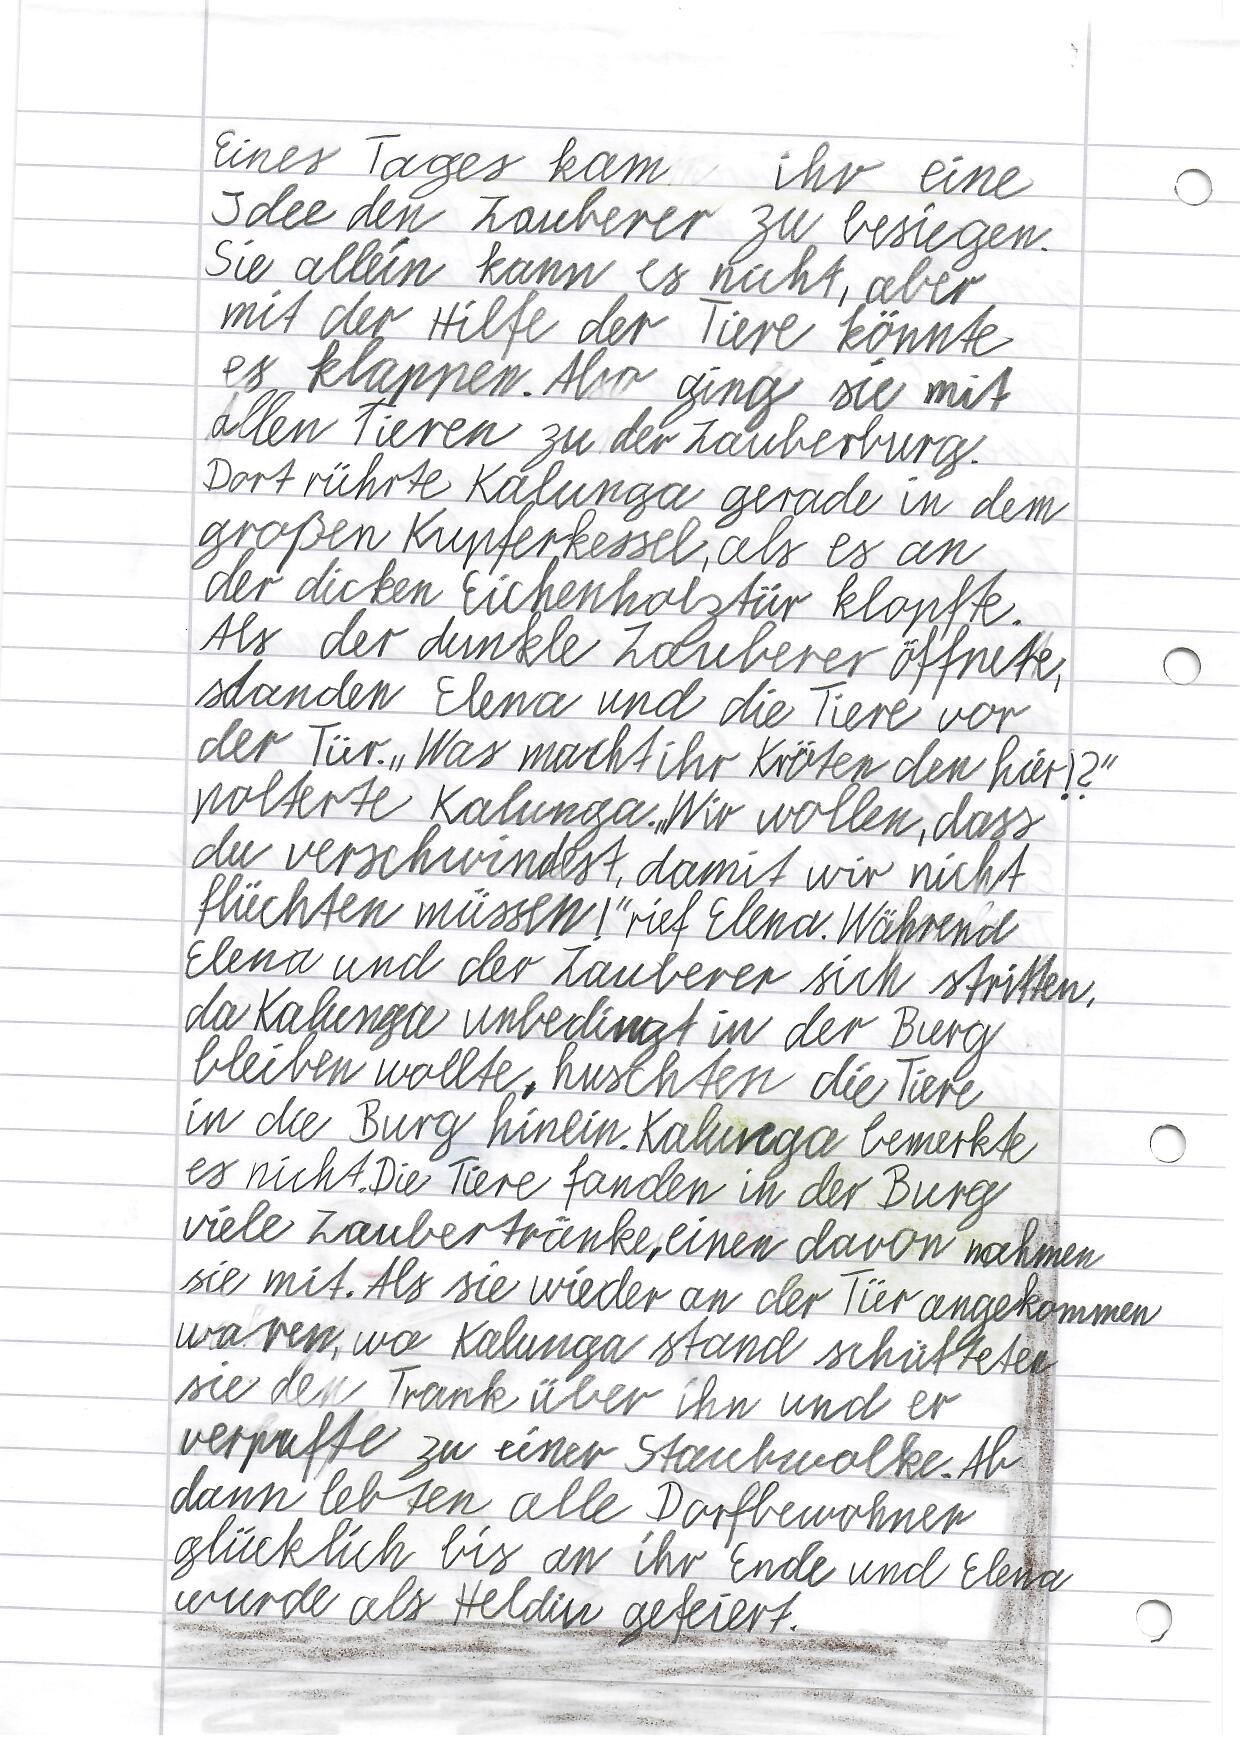 Eines Tages kam ihr eine
Idee den Zauberer zu besiegen.
Sie allein kann es nicht, aber
mit der Hilfe der Tiere könnte
es klappen. Also ging sie mit
allen Tieren zu der Zauberburg.
Dort rührte Kalunga gerade in dem
großen Kupferkessel, als es an
der dicken Eichenholztür klopfte.
Als der dunkle Zauberer öffnete,
standen Elena und die Tiere vor
der Tür. „Was macht ihr Kröten den hier!?"
polterte Kalunga. „Wir wollen, dass
du verschwindest, damit wir nicht
flüchten müssen!" rief Elena. Während
Elena und der Zauberer sich stritten,
da Kalunga unbedingt in der Burg
bleiben wollte, huschten die Tiere
in die Burg hinein. Kalunga bemerkte
es nicht. Die Tiere fanden in der Burg
viele Zaubertränke, einen davon nahmen
sie mit. Als sie wieder an der Tür angekommen
waren, wo Kalunga stand schütteten
sie den Trank über ihn und er
verpuffte zu einer Staubwolke. Ab
dann lebten alle Dorfbewohner
glücklich bis an ihr Ende und Elena
wurde als Heldin gefeiert.